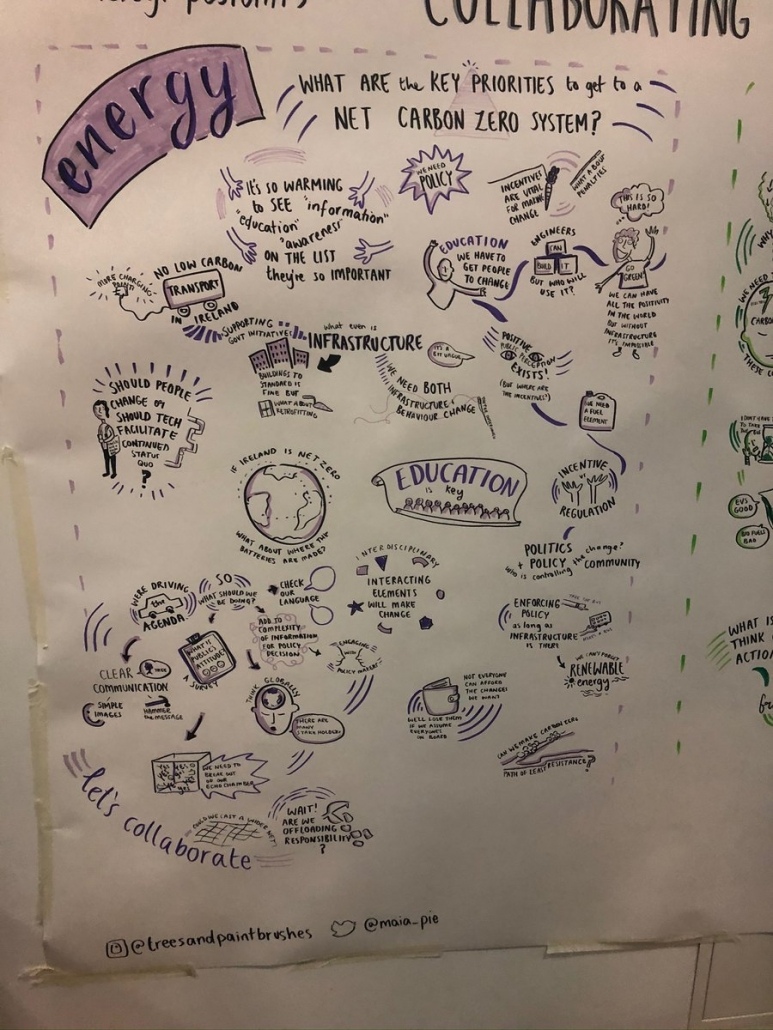 COLLABORATING
energy
WHAT ARE the KEY PRIORITIES to get to a
NET CARBON ZERO SYSTEM?
IT'S SO WARMING
to SEE "information"
"education" "awareness"
ON THE LIST
they're so IMPORTANT
WE NEED
POLICY
INCENTIVES
ARE VITAL
FOR MAKING
CHANGE
WHAT ABOUT
PENALTIES
THIS IS SO
HARD!
EDUCATION
WE HAVE TO
GET PEOPLE
TO CHANGE
ENGINEERS
CAN
BUILD IT
BUT WHO WILL
USE IT?
GO
GREEN
WE CAN HAVE
ALL THE POSITIVITY
IN THE WORLD
BUT WITHOUT
INFRASTRUCTURE
IT'S IMPOSSIBLE
MORE CHARGING
POINTS
NO LOW CARBON
TRANSPORT
IN IRELAND
SUPPORTING
GOVT INITIATIVES
what even is
INFRASTRUCTURE
IT'S A
BIT VAGUE
BUILDINGS TO
STANDARD IS
FINE BUT
WHAT ABOUT
RETROFITTING
WE NEED BOTH
INFRASTRUCTURE +
BEHAVIOUR CHANGE
POSITIVE
PUBLIC PERCEPTION
EXISTS!
(BUT WHERE ARE
THE INCENTIVES?)
WE NEED
A FUEL
ELEMENT
SHOULD PEOPLE
CHANGE or
SHOULD TECH
FACILITATE
CONTINUED
STATUS
QUO
?
IF IRELAND IS NET ZERO
WHAT ABOUT WHERE THE
BATTERIES ARE MADE?
EDUCATION
is key
INCENTIVE
vs
REGULATION
INTERDISCIPLINARY
INTERACTING
ELEMENTS
WILL MAKE
CHANGE
POLITICS
+ POLICY + COMMUNITY
who is controlling the change?
WE'RE DRIVING
the
AGENDA
SO
WHAT SHOULD WE
BE DOING?
CHECK
OUR
LANGUAGE
ADD TO
COMPLEXITY
OF INFORMATION
FOR POLICY
DECISION
ENGAGING
WITH
POLICY MAKERS
ENFORCING
POLICY
as long as
INFRASTRUCTURE
IS THERE
WE CAN'T FORGET
RENEWABLE
energy
WHAT IS
PUBLIC
ATTITUDE
A SURVEY
CLEAR
COMMUNICATION
SIMPLE
IMAGES
HAMMER
THE MESSAGE
THINK GLOBALLY
THERE ARE
MANY
STAKEHOLDERS
NOT EVERYONE
CAN AFFORD
THE CHANGES
WE WANT
WE'LL LOSE THEM
IF WE ASSUME
EVERYONE'S
ON BOARD
CAN WE MAKE CARBON ZERO
PATH OF LEAST RESISTANCE?
WE NEED TO
BREAK OUT
OF OUR
ECHO CHAMBER
let's collaborate
COULD WE CAST A WIDER NET?
WAIT!
ARE WE
OFFLOADING
RESPONSIBILITY
?
@treesandpaintbrushes
@maia_pie
EVS
GOOD
BIO FUELS
BAD
WHAT IS
THINK
ACTION